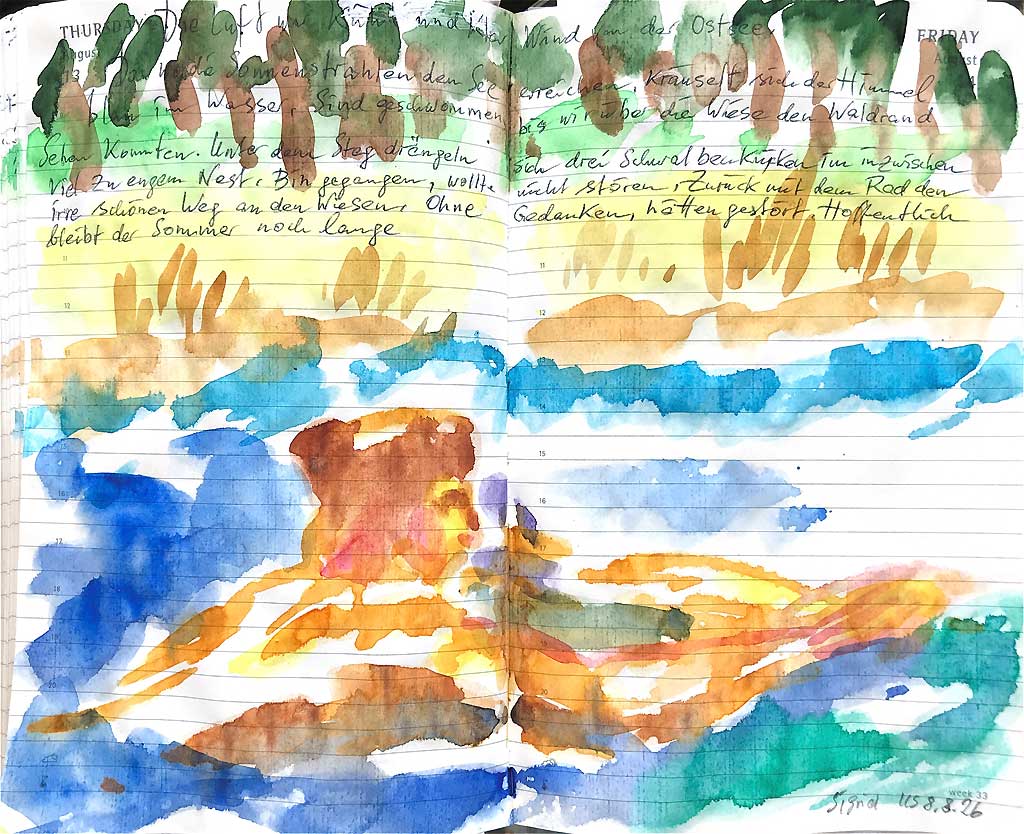 THURSDAY Die Luft war kühl und klar, Wind von der Ostsee FRIDAY
August August
13 Da wo die Sonnenstrahlen den See erreichen, kräuselt sich der Himmel
blau im Wasser. Sind geschwommen, bis wir über die Wiese den Waldrand
Sehen konnten. Unter dem Steg drängeln sich drei Schwalbenküken im inzwischen
viel zu engem Nest. Bin gegangen, wollte nicht stören. Zurück mit dem Rad den
irre schönen Weg an den Wiesen. Ohne Gedanken, hätten gestört. Hoffentlich
bleibt der Sommer noch lange
11 11
12 12
14
15
16 16
17 17
18
20 20
week 33
US 8.8.26